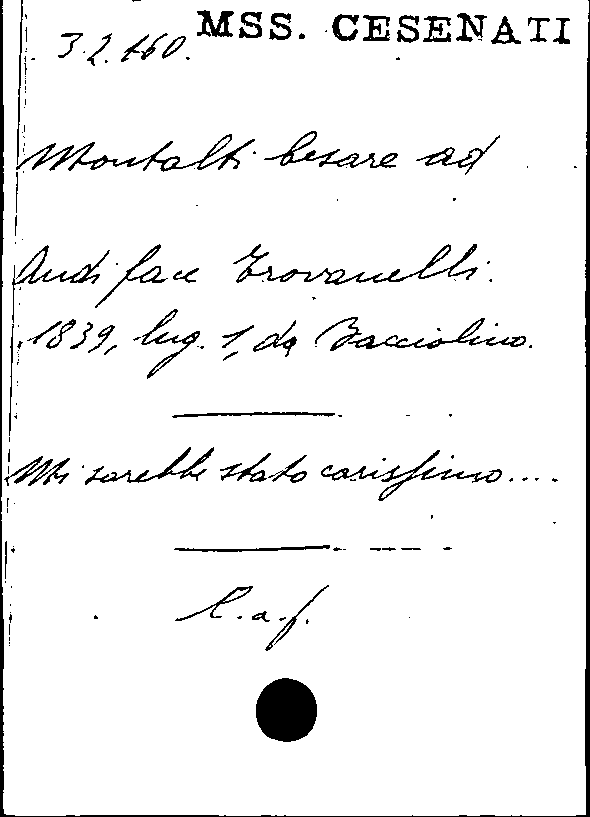 MSS. CESENATI
3.2.160.
Montalti Cesare ad
Audiface Trovanelli.
1839, lug. 1, da Bacciolino.
Mi sarebbe stato carissimo....
L.a.f.